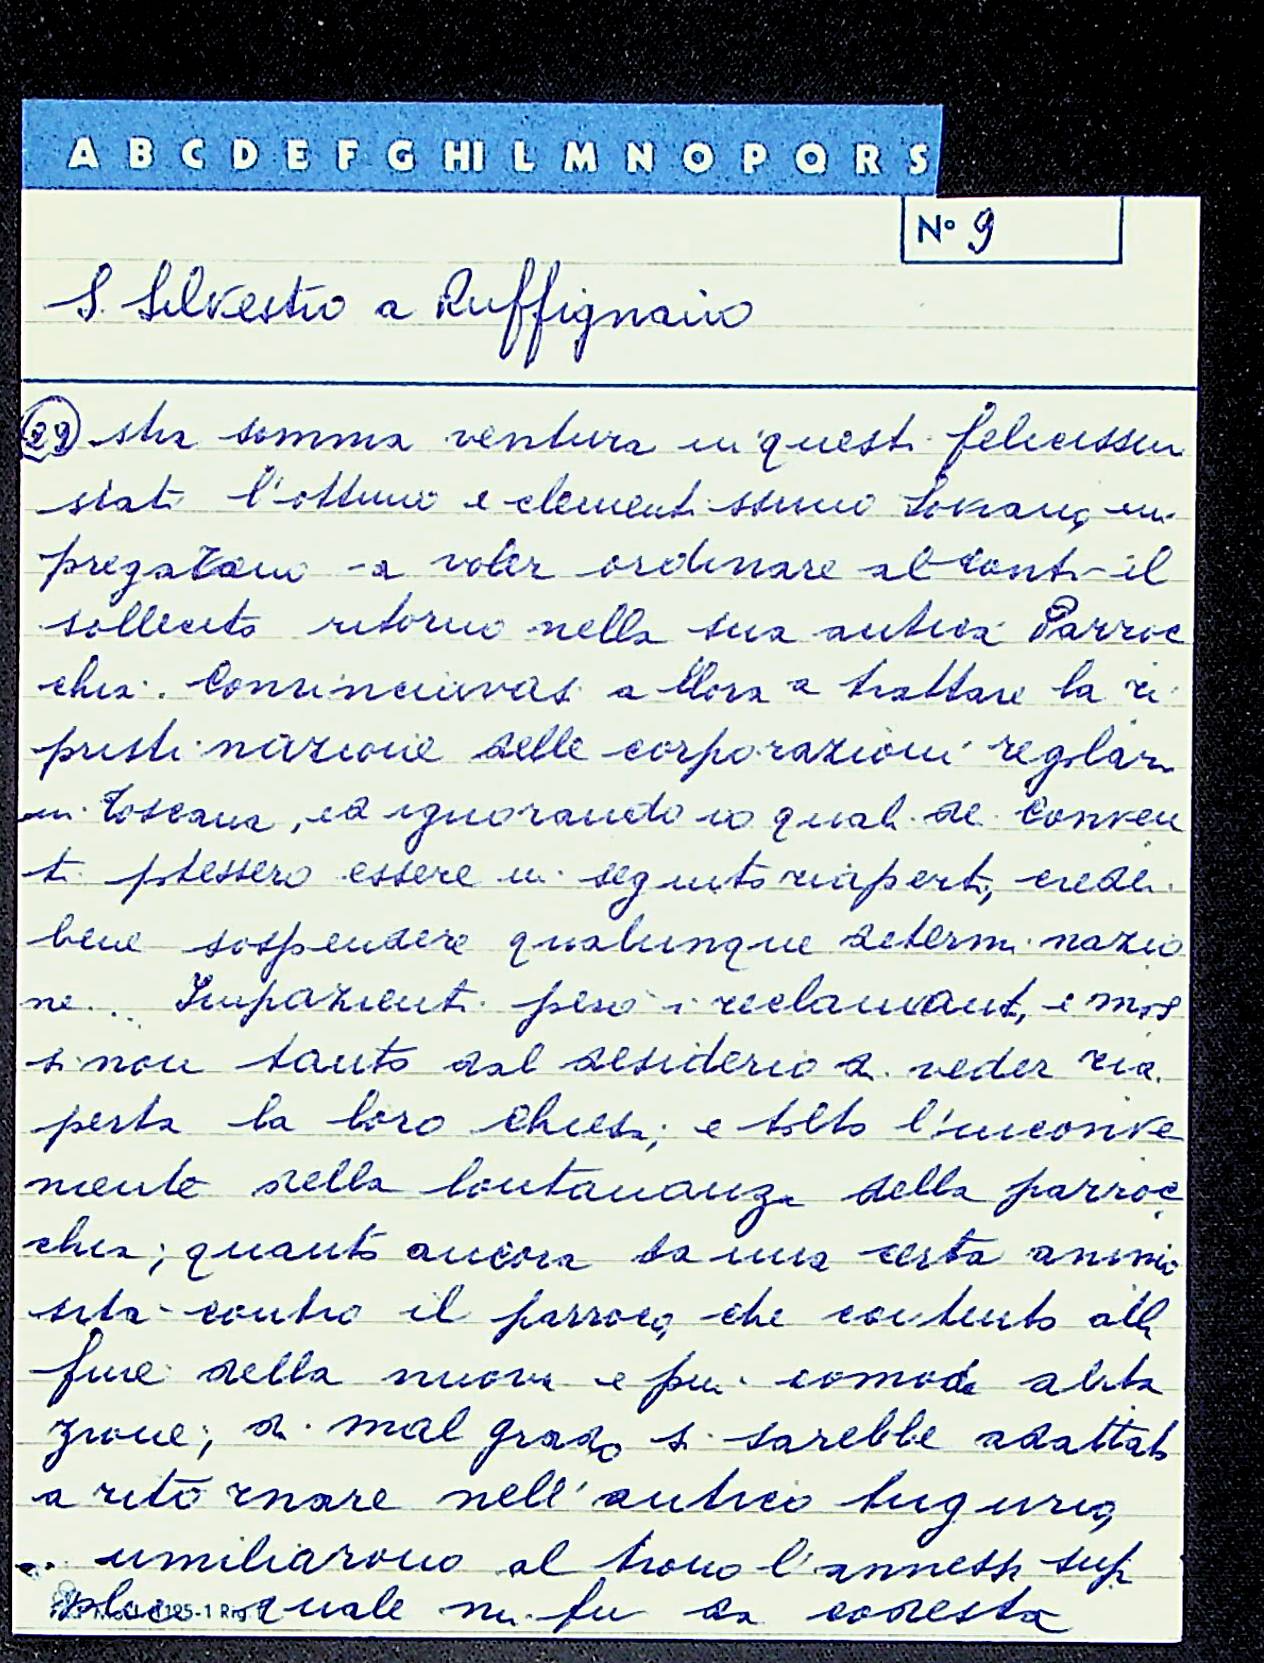 A B C D E F G HI L M N O P Q R S
N° 9
S. Silvestro a Ruffignano
29 stra somma ventura in questi felicissimi
stati l'ottimo e clementissimo Sovrano, mi
pregarono a voler ordinare al Conti il
sollecito ritorno nella sua antica Parroc
chia. Cominciavasi allora a trattare la ri
pristinazione delle corporazioni regolari
in Toscana, ed ignorando io quali de conven
ti potessero essere in seguito riaperti, credei
bene sospendere qualunque determinazio
ne... Impazienti però i reclamanti, e mos
si non tanto dal desiderio di veder ria
perta la loro Chiesa; e tolto l'inconve
niente della lontananza della parroc
chia; quanto ancora da una certa animo
sità contro il parroco, che contento alla
fine della nuova e più comoda abita
zione; di mal grado si sarebbe adattato
a ritornare nell'antico tugurio,
... umiliarono al trono l'annessa sup
plica quale mi fu da codesta